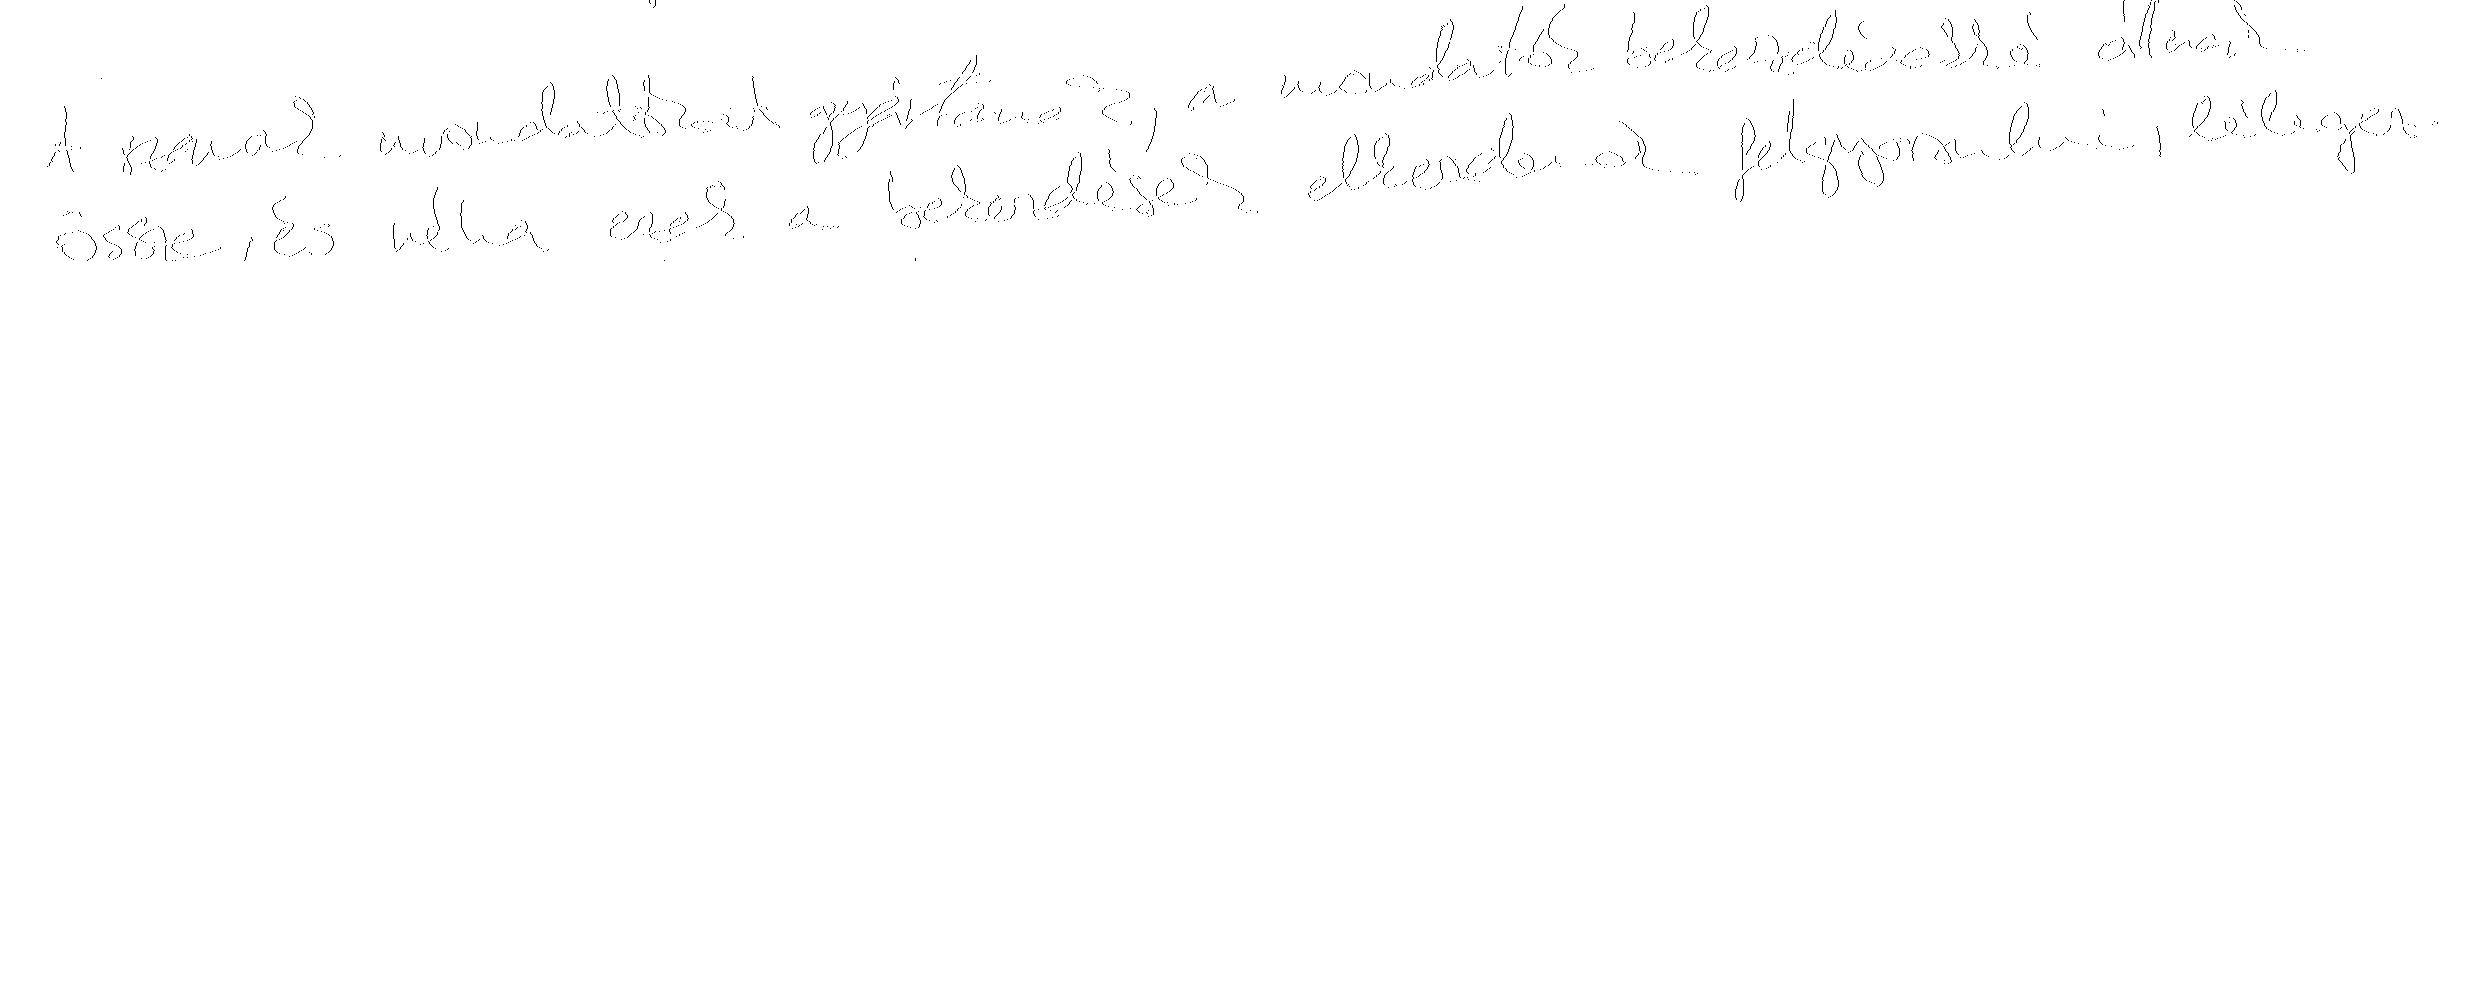 A szavak mondatokat gyártanak, a mondatok bekezdésekké állnak
össze, és néha ezek a bekezdések elkezdenek felgyorsulni, lélegezni